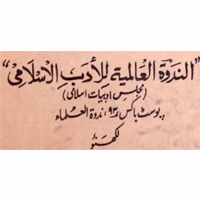 ”الندوة العالمية للأدب الإسلامي“
(مجلس ادبیات اسلامی)
پوسٹ باکس ۹۳، ندوة العلماء
لکھنؤ